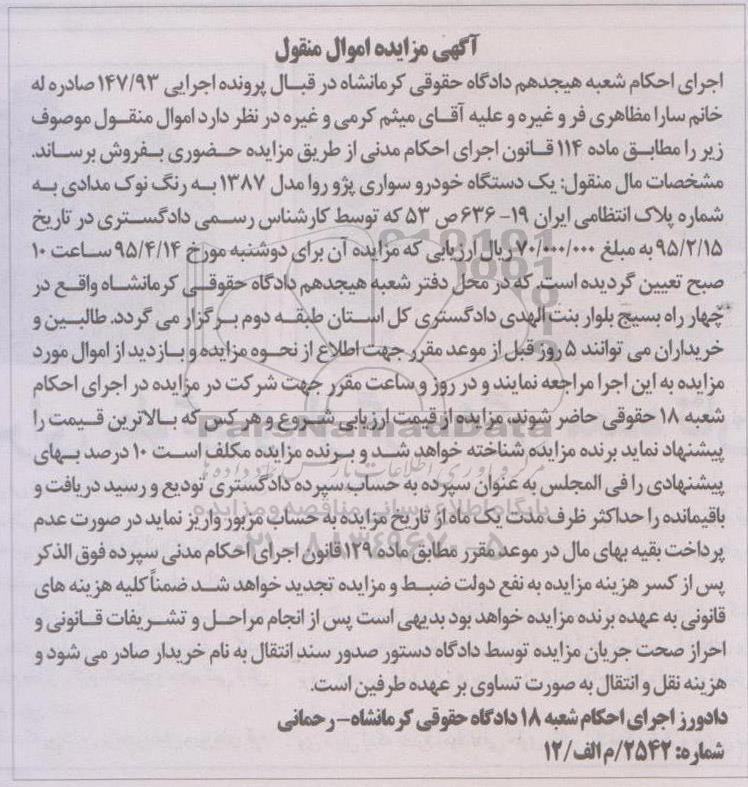 آگهی مزایده اموال منقول
اجرای احکام شعبه هیجدهم دادگاه حقوقی کرمانشاه در قبال پرونده اجرایی ۱۴۷/۹۳ صادره له
خانم سارا مظاهری فر و غیره و علیه آقای میثم کرمی و غیره در نظر دارد اموال منقول موصوف
زیر را مطابق ماده ۱۱۴ قانون اجرای احکام مدنی از طریق مزایده حضوری بفروش برساند.
مشخصات مال منقول: یک دستگاه خودرو سواری پژو روا مدل ۱۳۸۷ به رنگ نوک مدادی به
شماره پلاک انتظامی ایران ۱۹- ۶۳۶ ص ۵۳ که توسط کارشناس رسمی دادگستری در تاریخ
۹۵/۲/۱۵ به مبلغ ۷۰/۰۰۰/۰۰۰ ریال ارزیابی که مزایده آن برای دوشنبه مورخ ۹۵/۴/۱۴ ساعت ۱۰
صبح تعیین گردیده است. که در محل دفتر شعبه هیجدهم دادگاه حقوقی کرمانشاه واقع در
چهار راه بسیج بلوار بنت الهدی دادگستری کل استان طبقه دوم برگزار می گردد. طالبین و
خریداران می توانند ۵ روز قبل از موعد مقرر جهت اطلاع از نحوه مزایده و بازدید از اموال مورد
مزایده به این اجرا مراجعه نمایند و در روز و ساعت مقرر جهت شرکت در مزایده در اجرای احکام
شعبه ۱۸ حقوقی حاضر شوند. مزایده از قیمت ارزیابی شروع و هر کس که بالاترین قیمت را
پیشنهاد نماید برنده مزایده شناخته خواهد شد و برنده مزایده مکلف است ۱۰ درصد بهای
پیشنهادی را فی المجلس به عنوان سپرده به حساب سپرده دادگستری تودیع و رسید دریافت و
باقیمانده را حداکثر ظرف مدت یک ماه از تاریخ مزایده به حساب مزبور واریز نماید در صورت عدم
پرداخت بقیه بهای مال در موعد مقرر مطابق ماده ۱۲۹ قانون اجرای احکام مدنی سپرده فوق الذکر
پس از کسر هزینه مزایده به نفع دولت ضبط و مزایده تجدید خواهد شد ضمناً کلیه هزینه های
قانونی به عهده برنده مزایده خواهد بود بدیهی است پس از انجام مراحل و تشریفات قانونی و
احراز صحت جریان مزایده توسط دادگاه دستور صدور سند انتقال به نام خریدار صادر می شود و
هزینه نقل و انتقال به صورت تساوی بر عهده طرفین است.
دادورز اجرای احکام شعبه ۱۸ دادگاه حقوقی کرمانشاه- رحمانی
شماره: ۲۵۴۲/م الف/۱۲
ParsNamadData
پایگاه اطلاع رسانی مناقصه و مزایده